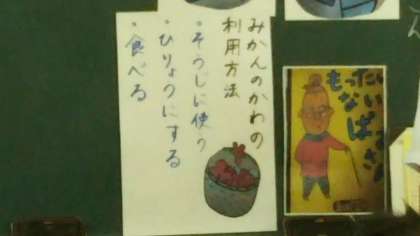 みかんのかわの
利用方法
・そうじに使う
・ひりょうにする
・食べる
もったい
ない
ばあさん